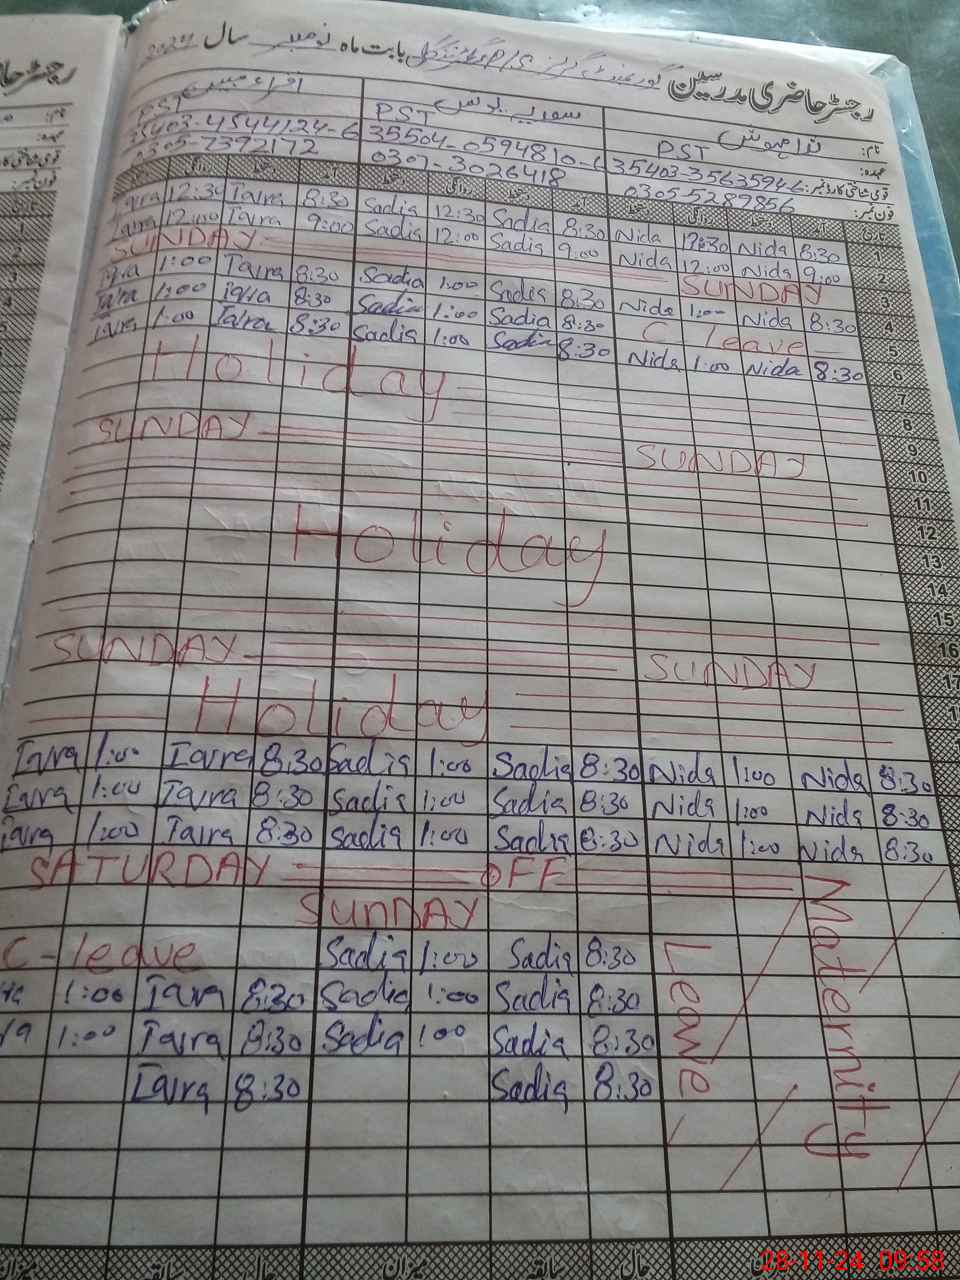 رجسٹر حاضری مدرسین گورنمنٹ گرلز P/S بابت ماہ نومبر سال 2024
نام: ندا مہوش
عہدہ: PST PST PST
قومی شناختی کارڈ نمبر: 35403-35635946 35504-0594810-6 35403-4544124-6
فون نمبر: 0305-5289856 0307-3026418 0305-7392172
Iqra 12:30 Iqra 8:30 Sadia 12:30 Sadia 8:30 Nida 12:30 Nida 8:30 1
Iqra 12:00 Iqra 9:00 Sadia 12:00 Sadia 9:00 Nida 12:00 Nida 9:00 2
SUNDAY SUNDAY 3
Iqra 1:00 Iqra 8:30 Sadia 1:00 Sadia 8:30 Nida 1:00 Nida 8:30 4
Iqra 1:00 Iqra 8:30 Sadia 1:00 Sadia 8:30 C leave 5
Iqra 1:00 Iqra 8:30 Sadia 1:00 Sadia 8:30 Nida 1:00 Nida 8:30 6
Holiday 7
8
9
SUNDAY SUNDAY 10
11
12
Holiday 13
14
15
16
SUNDAY SUNDAY 17
Holiday
Iqra 1:00 Iqra 8:30 Sadia 1:00 Sadia 8:30 Nida 1:00 Nida 8:30
Iqra 1:00 Iqra 8:30 Sadia 1:00 Sadia 8:30 Nida 1:00 Nida 8:30
Iqra 1:00 Iqra 8:30 Sadia 1:00 Sadia 8:30 Nida 1:00 Nida 8:30
SATURDAY OFF
SUNDAY
C-leave Sadia 1:00 Sadia 8:30
1:00 Iqra 8:30 Sadia 1:00 Sadia 8:30
1:00 Iqra 8:30 Sadia 1:00 Sadia 8:30
Iqra 8:30 Sadia 8:30
Maternity
Leave
میزان سابقہ حال میزان سابقہ حال
28-11-24 09:58